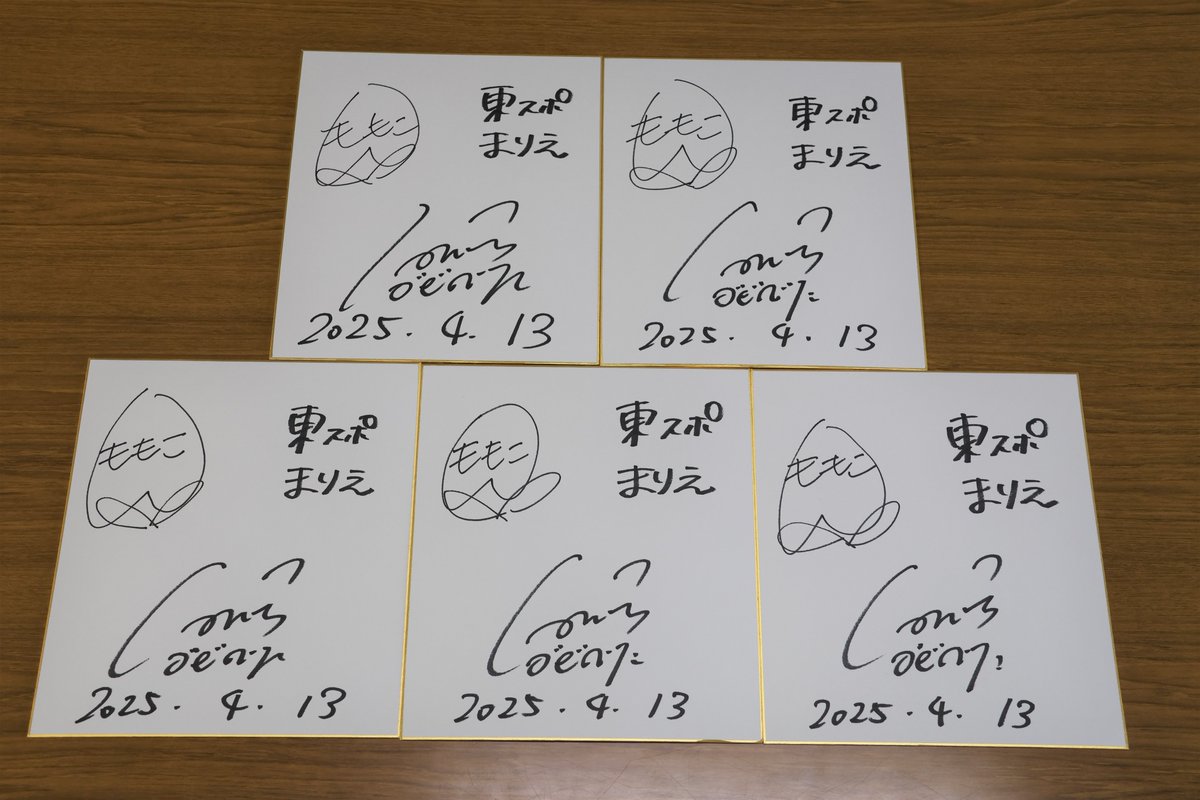 ももこ
東スポ
まりえ
2025. 4. 13
ももこ
東スポ
まりえ
2025. 4. 13
ももこ
東スポ
まりえ
2025. 4. 13
ももこ
東スポ
まりえ
2025. 4. 13
ももこ
東スポ
まりえ
2025. 4. 13